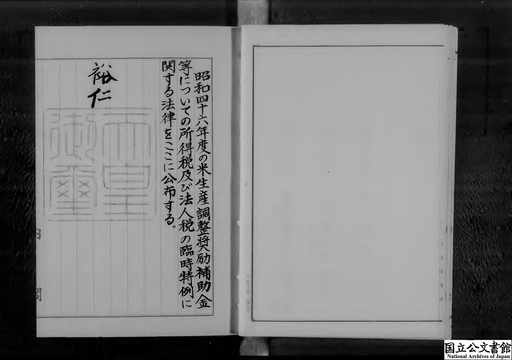 昭和四十六年度の米生産調整奨励補助金
等についての所得税及び法人税の臨時特例に
関する法律をここに公布する。
裕仁
天皇
御璽
内
閣
国立公文書館
National Archives of Japan